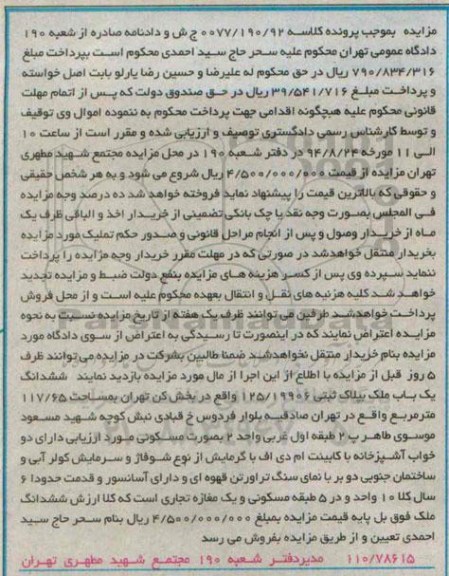 مزایده بموجب پرونده کلاسه ۰۰۷۷/۱۹۰/۹۲ ج ش و دادنامه صادره از شعبه ۱۹۰
دادگاه عمومی تهران محکوم علیه سحر حاج سید احمدی محکوم است بپرداخت مبلغ
۷۹۰/۸۳۴/۳۱۶ ریال در حق محکوم له علیرضا و حسین رضا یارلو بابت اصل خواسته
و پرداخت مبلغ ۳۹/۵۴۱/۷۱۶ ریال در حق صندوق دولت که پس از اتمام مهلت
قانونی محکوم علیه هیچگونه اقدامی جهت پرداخت محکوم به ننموده اموال وی توقیف
و توسط کارشناس رسمی دادگستری توصیف و ارزیابی شده و مقرر است از ساعت ۱۰
الی ۱۱ مورخه ۹۴/۸/۲۴ در دفتر شعبه ۱۹۰ در محل مزایده مجتمع شهید مطهری
تهران مزایده از قیمت ۴/۵۰۰/۰۰۰/۰۰۰ ریال شروع می شود و به هر شخص حقیقی
و حقوقی که بالاترین قیمت را پیشنهاد نماید فروخته خواهد شد ده درصد وجه مزایده
فی المجلس بصورت وجه نقد یا چک بانکی تضمینی از خریدار اخذ و الباقی ظرف یک
ماه از خریدار وصول و پس از انجام مراحل قانونی و صدور حکم تملیک مورد مزایده
بخریدار منتقل خواهدشد در صورتی که در مهلت مقرر خریدار وجه مزایده را پرداخت
ننماید سپرده وی پس از کسر هزینه های مزایده بنفع دولت ضبط و مزایده تجدید
خواهد شد کلیه هزینه های نقل و انتقال بعهده محکوم علیه است و از محل فروش
پرداخت خواهدشد طرفین می توانند ظرف یک هفته از تاریخ مزایده نسبت به نحوه
مزایده اعتراض نمایند که در اینصورت تا رسیدگی به اعتراض از سوی دادگاه مورد
مزایده بنام خریدار منتقل نخواهدشد ضمنا طالبین بشرکت در مزایده می توانند ظرف
۵ روز قبل از مزایده با اطلاع از این اجرا از مال مورد مزایده بازدید نمایند ششدانگ
یک باب ملک پلاک ثبتی ۱۲۵/۱۹۹۰۶ واقع در بخش کن تهران بمساحت ۱۱۷/۶۵
مترمربع واقع در تهران صادقیه بلوار فردوس خ قبادی نبش کوچه شهید مسعود
موسوی طاهر پ ۲ طبقه اول غربی واحد ۲ بصورت مسکونی مورد ارزیابی دارای دو
خواب آشپزخانه با کابینت ام دی اف با گرمایش از نوع شوفاژ و سرمایش کولر آبی و
ساختمان جنوبی دو بر با نمای سنگ تراورتن قهوه ای و دارای آسانسور و قدمت حدودا ۶
سال کلا ۱۰ واحد و در ۵ طبقه مسکونی و یک مغازه تجاری است که کلا ارزش ششدانگ
ملک فوق بل پایه قیمت مزایده بمبلغ ۴/۵۰۰/۰۰۰/۰۰۰ ریال بنام سحر حاج سید
احمدی تعیین و از طریق مزایده بفروش می رسد
۱۱۰/۷۸۶۱۵ مدیردفتر شعبه ۱۹۰ مجتمع شهید مطهری تهران